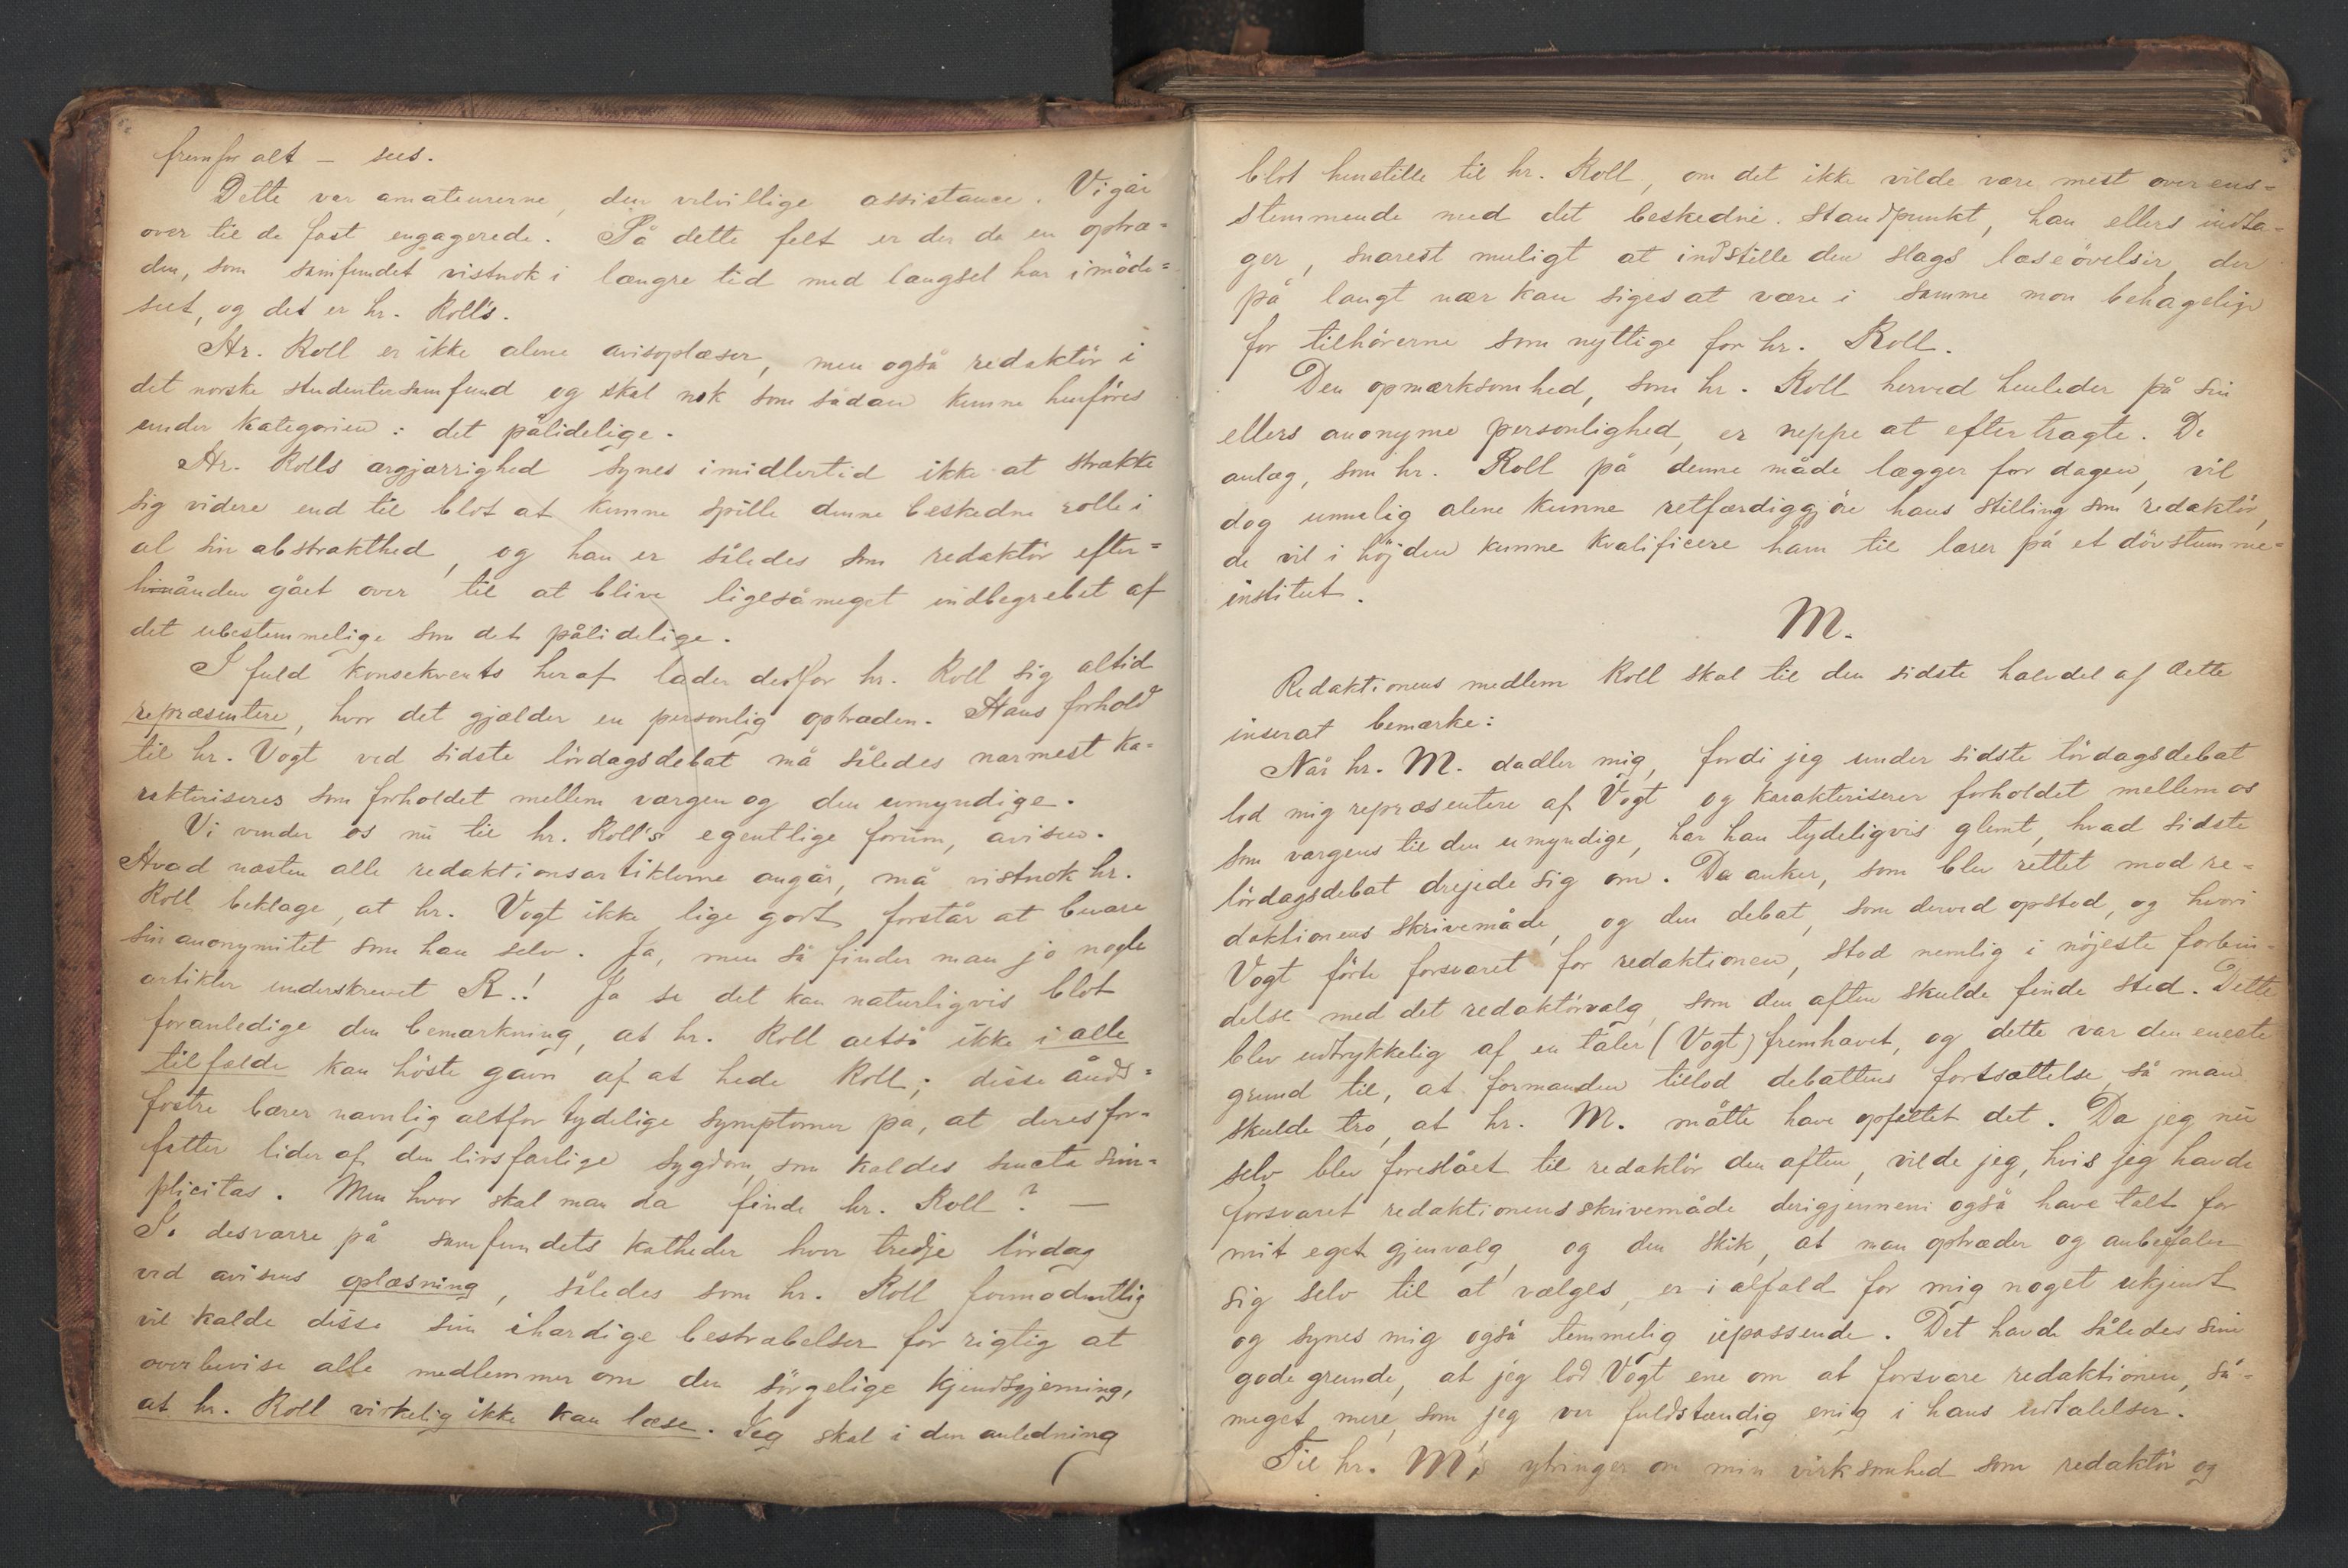 fremfor alt – sees.
Dette var amateurerne, den velvillige assistance. Vi går
over til de fast engagerede. På dette felt er der da en optræ=
den, som samfundet vistnok i længre tid med længsel har imöde=
seet, og det er hr. Roll's.
Hr. Roll er ikke alene avisoplæser, men også redaktör i
det norske studentersamfund og skal nok som sådan kunne henföres
under kategorien: det pålidelige.
Hr. Rolls ærgjærrighed synes imidlertid ikke at strække
sig videre end til blot at kunne spille denne beskedne rolle i
al sin abstrakthed, og han er således som redaktör efter=
hånden gået over til at blive ligesåmeget indbegrebet af
det ubestemmelige som det pålidelige.
I fuld konsekvents heraf lader derfor hr. Roll sig altid
repræsentere, hvor det gjælder en personlig optræden. Hans forhold
til hr. Vogt ved sidste lördagsdebat må således nærmest ka=
rakteriseres som forholdet mellem værgen og den umyndige.
Vi vender os nu til hr. Roll's egentlige forum, avisen.
Hvad næsten alle redaktionsartiklerne angår, må vistnok hr.
Roll beklage, at hr. Vogt ikke lige godt forstår at bevare
sin anonymitet som han selv. Ja, men så finder man jo nogle
artikler underskrevet R.! Ja se det kan naturligvis blot
foranledige den bemærkning, at hr. Roll altså ikke i alle
tilfælde kan höste gavn af at hede Roll; disse ånds=
fostre bærer navnlig altfor tydelige symptomer på, at deres for=
fatter lider af den livsfarlige sygdom, som kaldes sancta sim=
plicitas. Men hvor skal man da finde hr. Roll? —
Jo desværre på samfundets katheder hver tredje lördag
ved avisens oplæsning, således som hr. Roll formodentlig
vil kalde disse sine ihærdige bestræbelser for rigtig at
overbevise alle medlemmer om den sörgelige kjendsgjerning,
at hr. Roll virkelig ikke kan læse. Jeg skal i den anledning
blot henstille til hr. Roll, om det ikke vilde være mest overens=
stemmende med det beskedne standpunkt, han ellers indta=
ger, snarest muligt at indstille den slags læseövelser, der
på langt nær kan siges at være i samme mon behagelige
for tilhörerne som nyttige for hr. Roll.
Den opmærksomhed, som hr. Roll herved henleder på sin
ellers anonyme personlighed, er neppe at eftertragte. De
anlæg, som hr. Roll på denne måde lægger for dagen, vil
dog umulig alene kunne retfærdiggjöre hans stilling som redaktör,
de vil i höjden kunne kvalificere ham til lærer på et dövstumme=
institut.
M.
Redaktionens medlem Roll skal til den sidste halvdel af dette
inserat bemærke:
Når hr. M. dadler mig, fordi jeg under sidste lördagsdebat
lod mig repræsentere af Vogt og karakteriserer forholdet mellem os
som værgens til den umyndige, har han tydeligvis glemt, hvad sidste
lördagsdebat drejede sig om. De anker, som blev rettet mod re=
daktionens skrivemåde, og den debat, som derved opstod, og hvori
Vogt förte forsvaret for redaktionen, stod nemlig i nöjeste forbin=
delse med det redaktörvalg, som den aften skulde finde sted. Dette
blev udtrykkelig af en taler (Vogt) fremhævet, og dette var den eneste
grund til, at formanden tillod debattens fortsættelse, så man
skulde tro, at hr. M. måtte have opfattet det. Da jeg nu
selv blev foreslået til redaktör den aften, vilde jeg, hvis jeg havde
forsvaret redaktionens skrivemåde derigjennem også have talt for
mit eget gjenvalg, og den skik, at man optræder og anbefaler
sig selv til at vælges, er i alfald for mig noget ukjendt
og synes mig også temmelig upassende. Det havde således sine
gode grunde, at jeg lod Vogt ene om at forsvare redaktionen, så=
meget mere, som jeg var fuldstændig enig i hans udtalelser.
Til hr. M's ytringer om min virksomhed som redaktör og